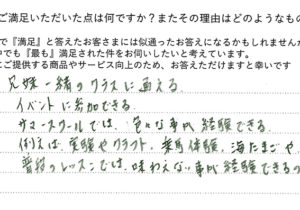 ご満足いただいた点は何ですか？またその理由はどのようなもの
で『満足』と答えたお客さまには似通ったお答えになるかもしれませんが
中でも『最も』満足された件をお伺いしたいと考えています。
にご提供する商品やサービス向上のため、お答えただけますと幸いです
兄妹一緒のクラスに通える。
イベントに参加できる。
サマースクールでは、色々な事が経験できる。
例えば、実験やクラフト、乗馬体験、海たまごや
普段のレッスンでは、味わえない事が経験できるの